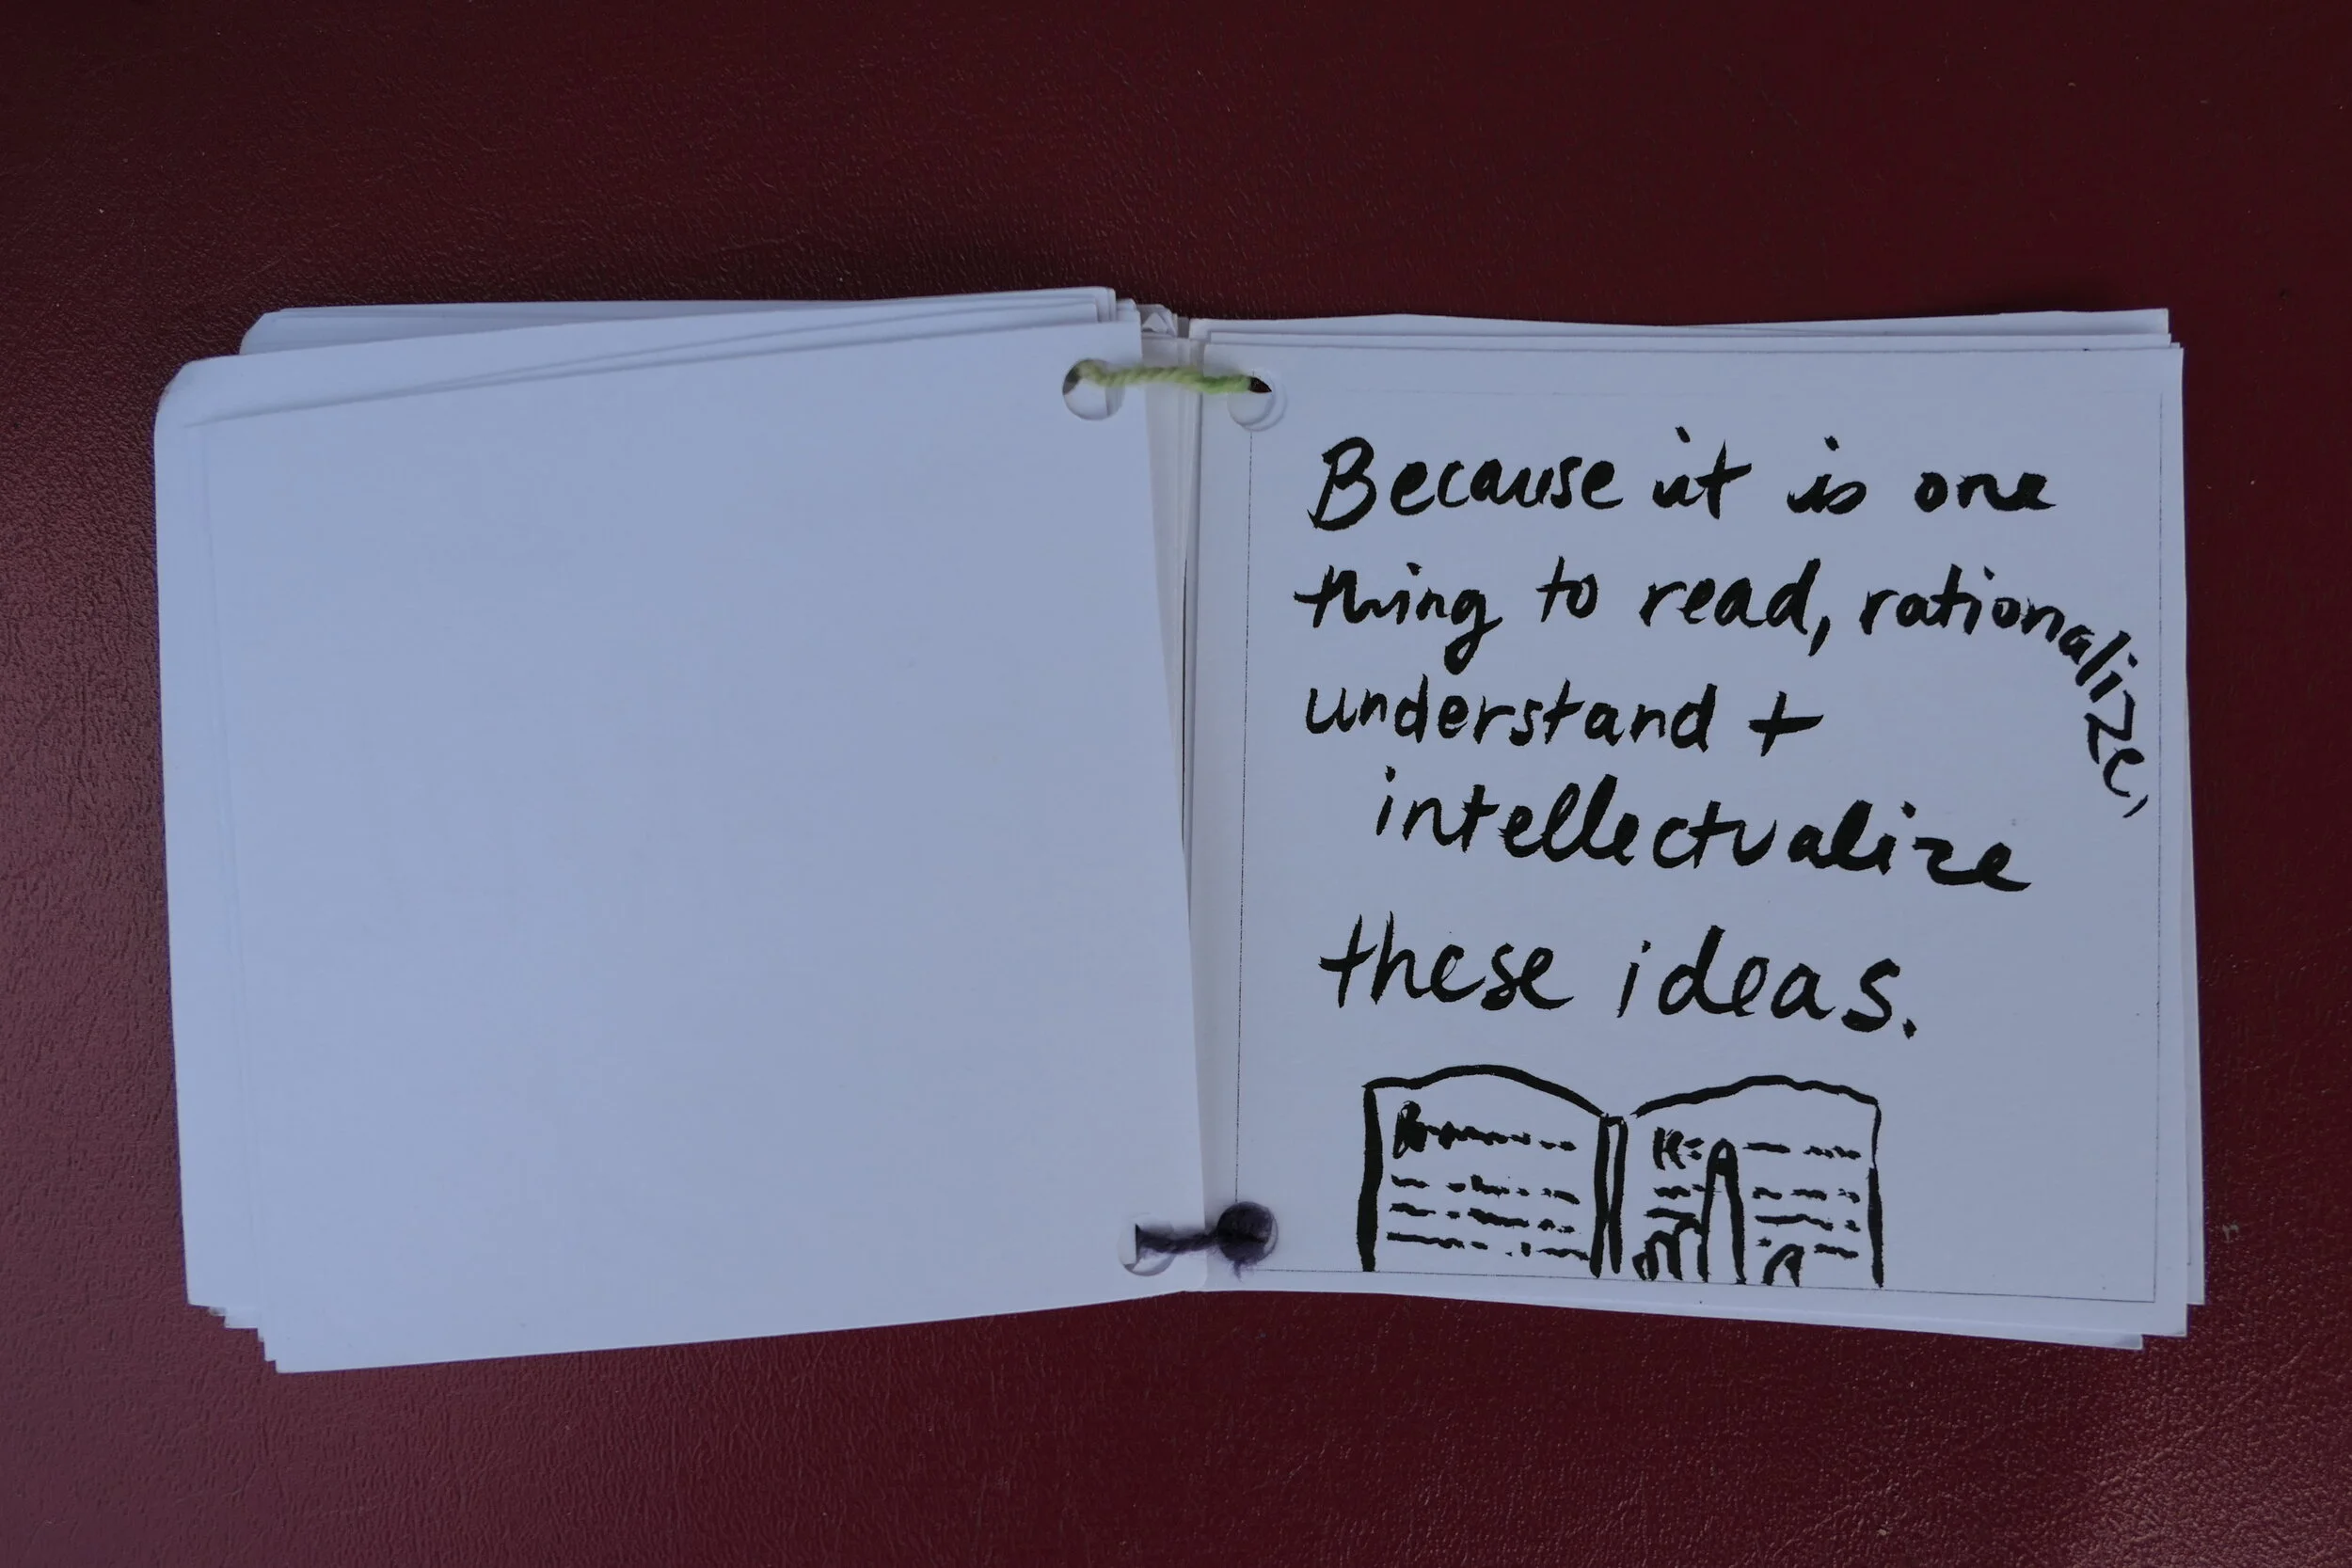 Because it is one
thing to read, rationalize,
understand +
intellectualize
these ideas.